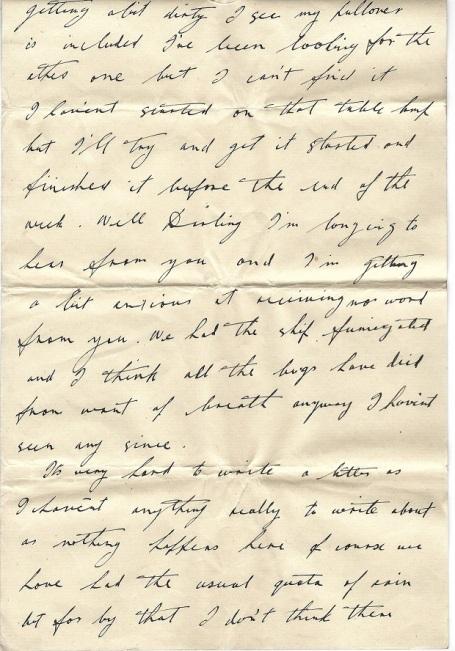 getting a bit dirty I see my pullover
is included I've been looking for the
other one but I can't find it
I haven't started on that table lamp
but I'll try and get it started and
finished it before the end of the
week. Well Darling I'm longing to
hear from you and I'm getting
a bit anxious at receiving no word
from you. We had the ship fumigated
and I think all the bugs have died
from want of breath anyway I havent
seen any since.
Its very hard to write a letter as
I havent anything really to write about
as nothing happens here of course we
have had the usual quota of rain
but for by that I don't think there